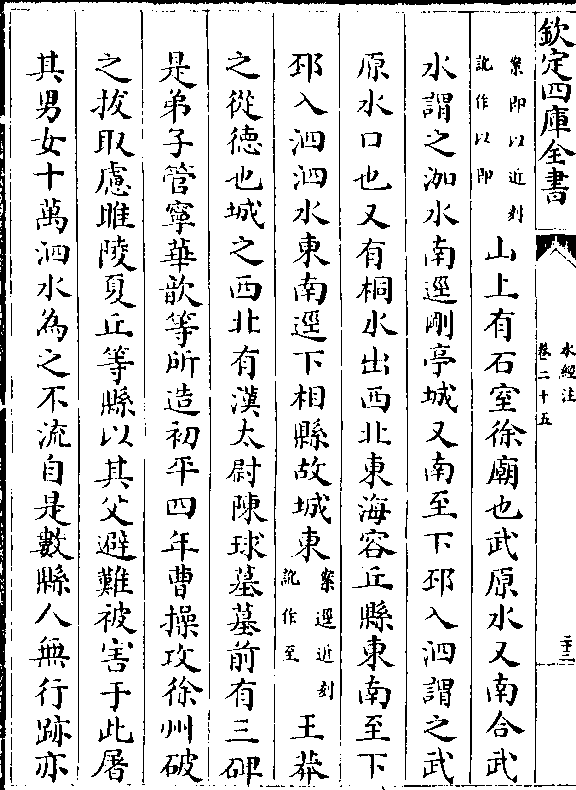 欽定四庫全書
水經注
卷二十五
二十三
案即以近刻
訛作以即
山上有石室徐廟也武原水又南合武
水謂之泇水南逕剛亭城又南至下邳入泗謂之武
原水口也又有桐水出西北東海容丘縣東南至下
邳入泗泗水東南逕下相縣故城東案逕近刻訛作至王莽
之從德也城之西北有漢太尉陳球墓墓前有三碑
是弟子管寧華歆等所造初平四年曹操攻徐州破
之拔取慮睢陵夏丘等縣以其父避難被害于此屠
其男女十萬泗水為之不流自是數縣人無行跡亦